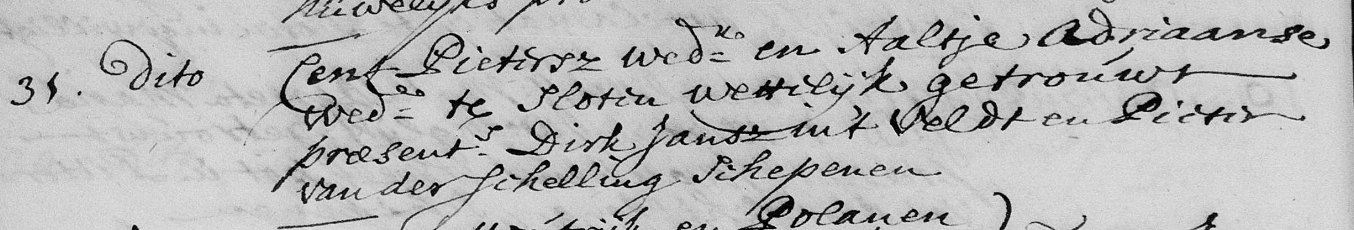 31. dito Cent Pietersz wed.no en Aaltje Adriaanse
wed.eo te Sloten wettelijk getrouwt
præsent.s Dirk Jansz in't Veldt en Pieter
van der Schelling Schepenen
en Polanen